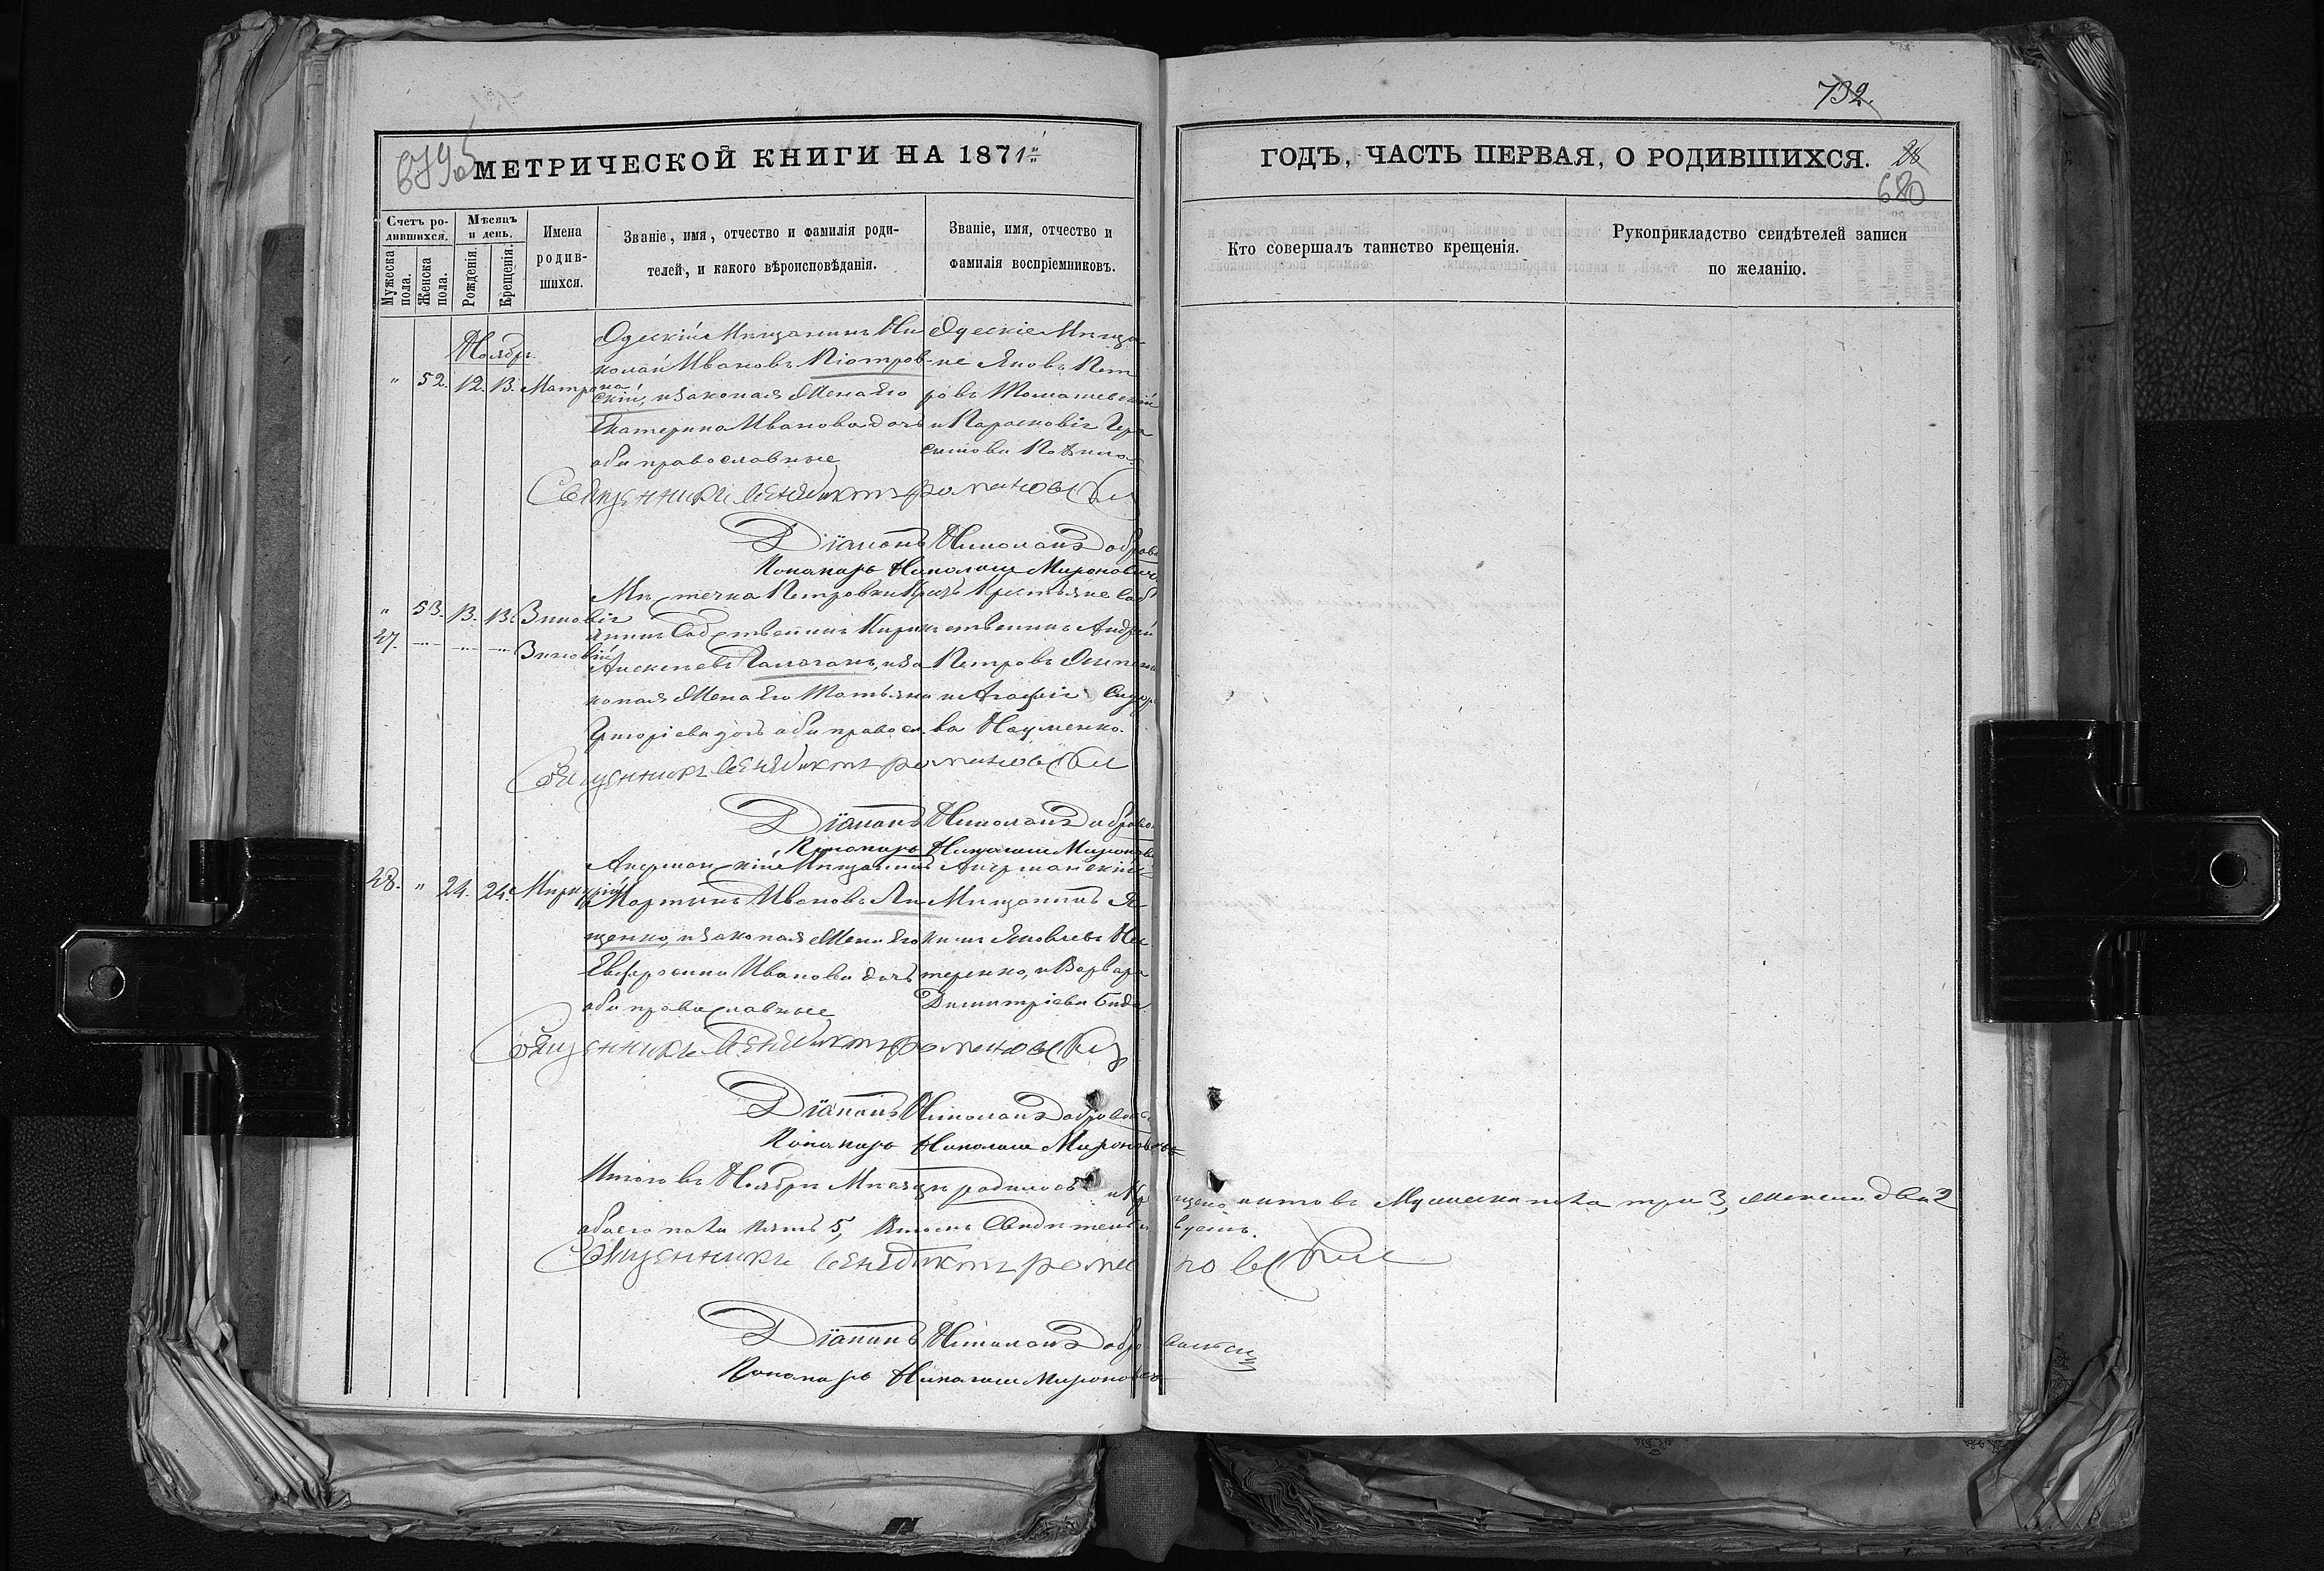 732.
8795
МЕТРИЧЕСКОЙ КНИГИ НА 1871
ГОДЪ, ЧАСТЬ ПЕРВАЯ, О РОДИВШИХСЯ.
28
680
Счетъ ро-
дившихся.
Мужеска
пола.
Женска
пола.
Мѣсяцъ
и день.
Рожденія.
Крещенія.
Имена
родив-
шихся.
Званіе, имя, отчество и фамилія роди-
телей, и какого вѣроисповѣданія.
Званіе, имя, отчество и
фамилія воспріемниковъ.
Кто совершалъ таинство крещенія.
Рукоприкладство свидѣтелей записи
по желанію.
Ноября
" 52. 12. 13. Матрона
Одескій Мѣщанинъ Ни
колай Ивановъ Піотров-
скій, и законая Жена его
Екатерина Иванова дочь
оби православные
Одескіе Мѣща-
не Яковъ Пет
ровъ Томашевскій
и Параскевія Гера
симова
Священникъ Венедиктъ Романовскій
Діаконъ Николай Добров
Пономарь Николай Мироновичъ
" 53. 13. 13. Зиновія
27. Зиновій
Мѣстечка Петровки
янинъ Собственникъ
Алексѣевъ и за
коная Жена его Татьяна
Григоріева дочь оби правосл.
Крестьяне Соб
ственникъ Андрей
Петровъ
и Агафія Сидор
ва Науменко.
Священникъ Венедиктъ Романовскій
Діаконъ Николай Добров
Пономарь Николай Миронов
28. " 24. 24. Меркурій
Акерманскій Мѣщанинъ
Мартинъ Ивановъ Ли
щенко, и законая Жена его
Евфросина Иванова дочь
оби православные
Акерманскій
Мѣщанинъ Я
кимъ Яковлевъ Не
теренко, и Варвара
Димитріева
Священникъ Венедиктъ Романовскій
Діаконъ Николай Добровол
Пономарь Николай Мироновичъ
Итого въ Ноябрѣ Мѣсяцѣ родилось и Крещено Мужеска пола три 3, Женска два 2
обоего пола пять 5, въ томъ Свидѣтельствуемъ.
Священникъ Венедиктъ Романовскій
Діаконъ Николай Добровольскій
Пономарь Николай Мироновичъ